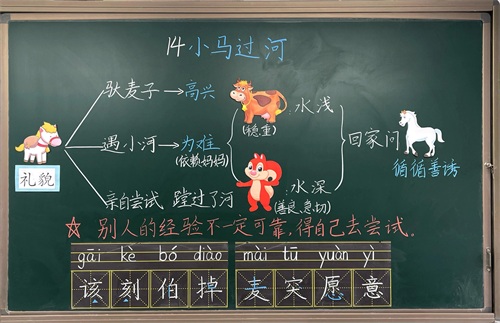 14小马过河
驮麦子→高兴
水浅
(稳重)
遇小河→为难
(依赖妈妈)
回家问
循循善诱
礼貌
亲自尝试 蹚过了河
水深
(善良、急切)
☆别人的经验不一定可靠,得自己去尝试。
gāi kè bó diào mài tū yuàn yì
该刻伯掉麦突愿意